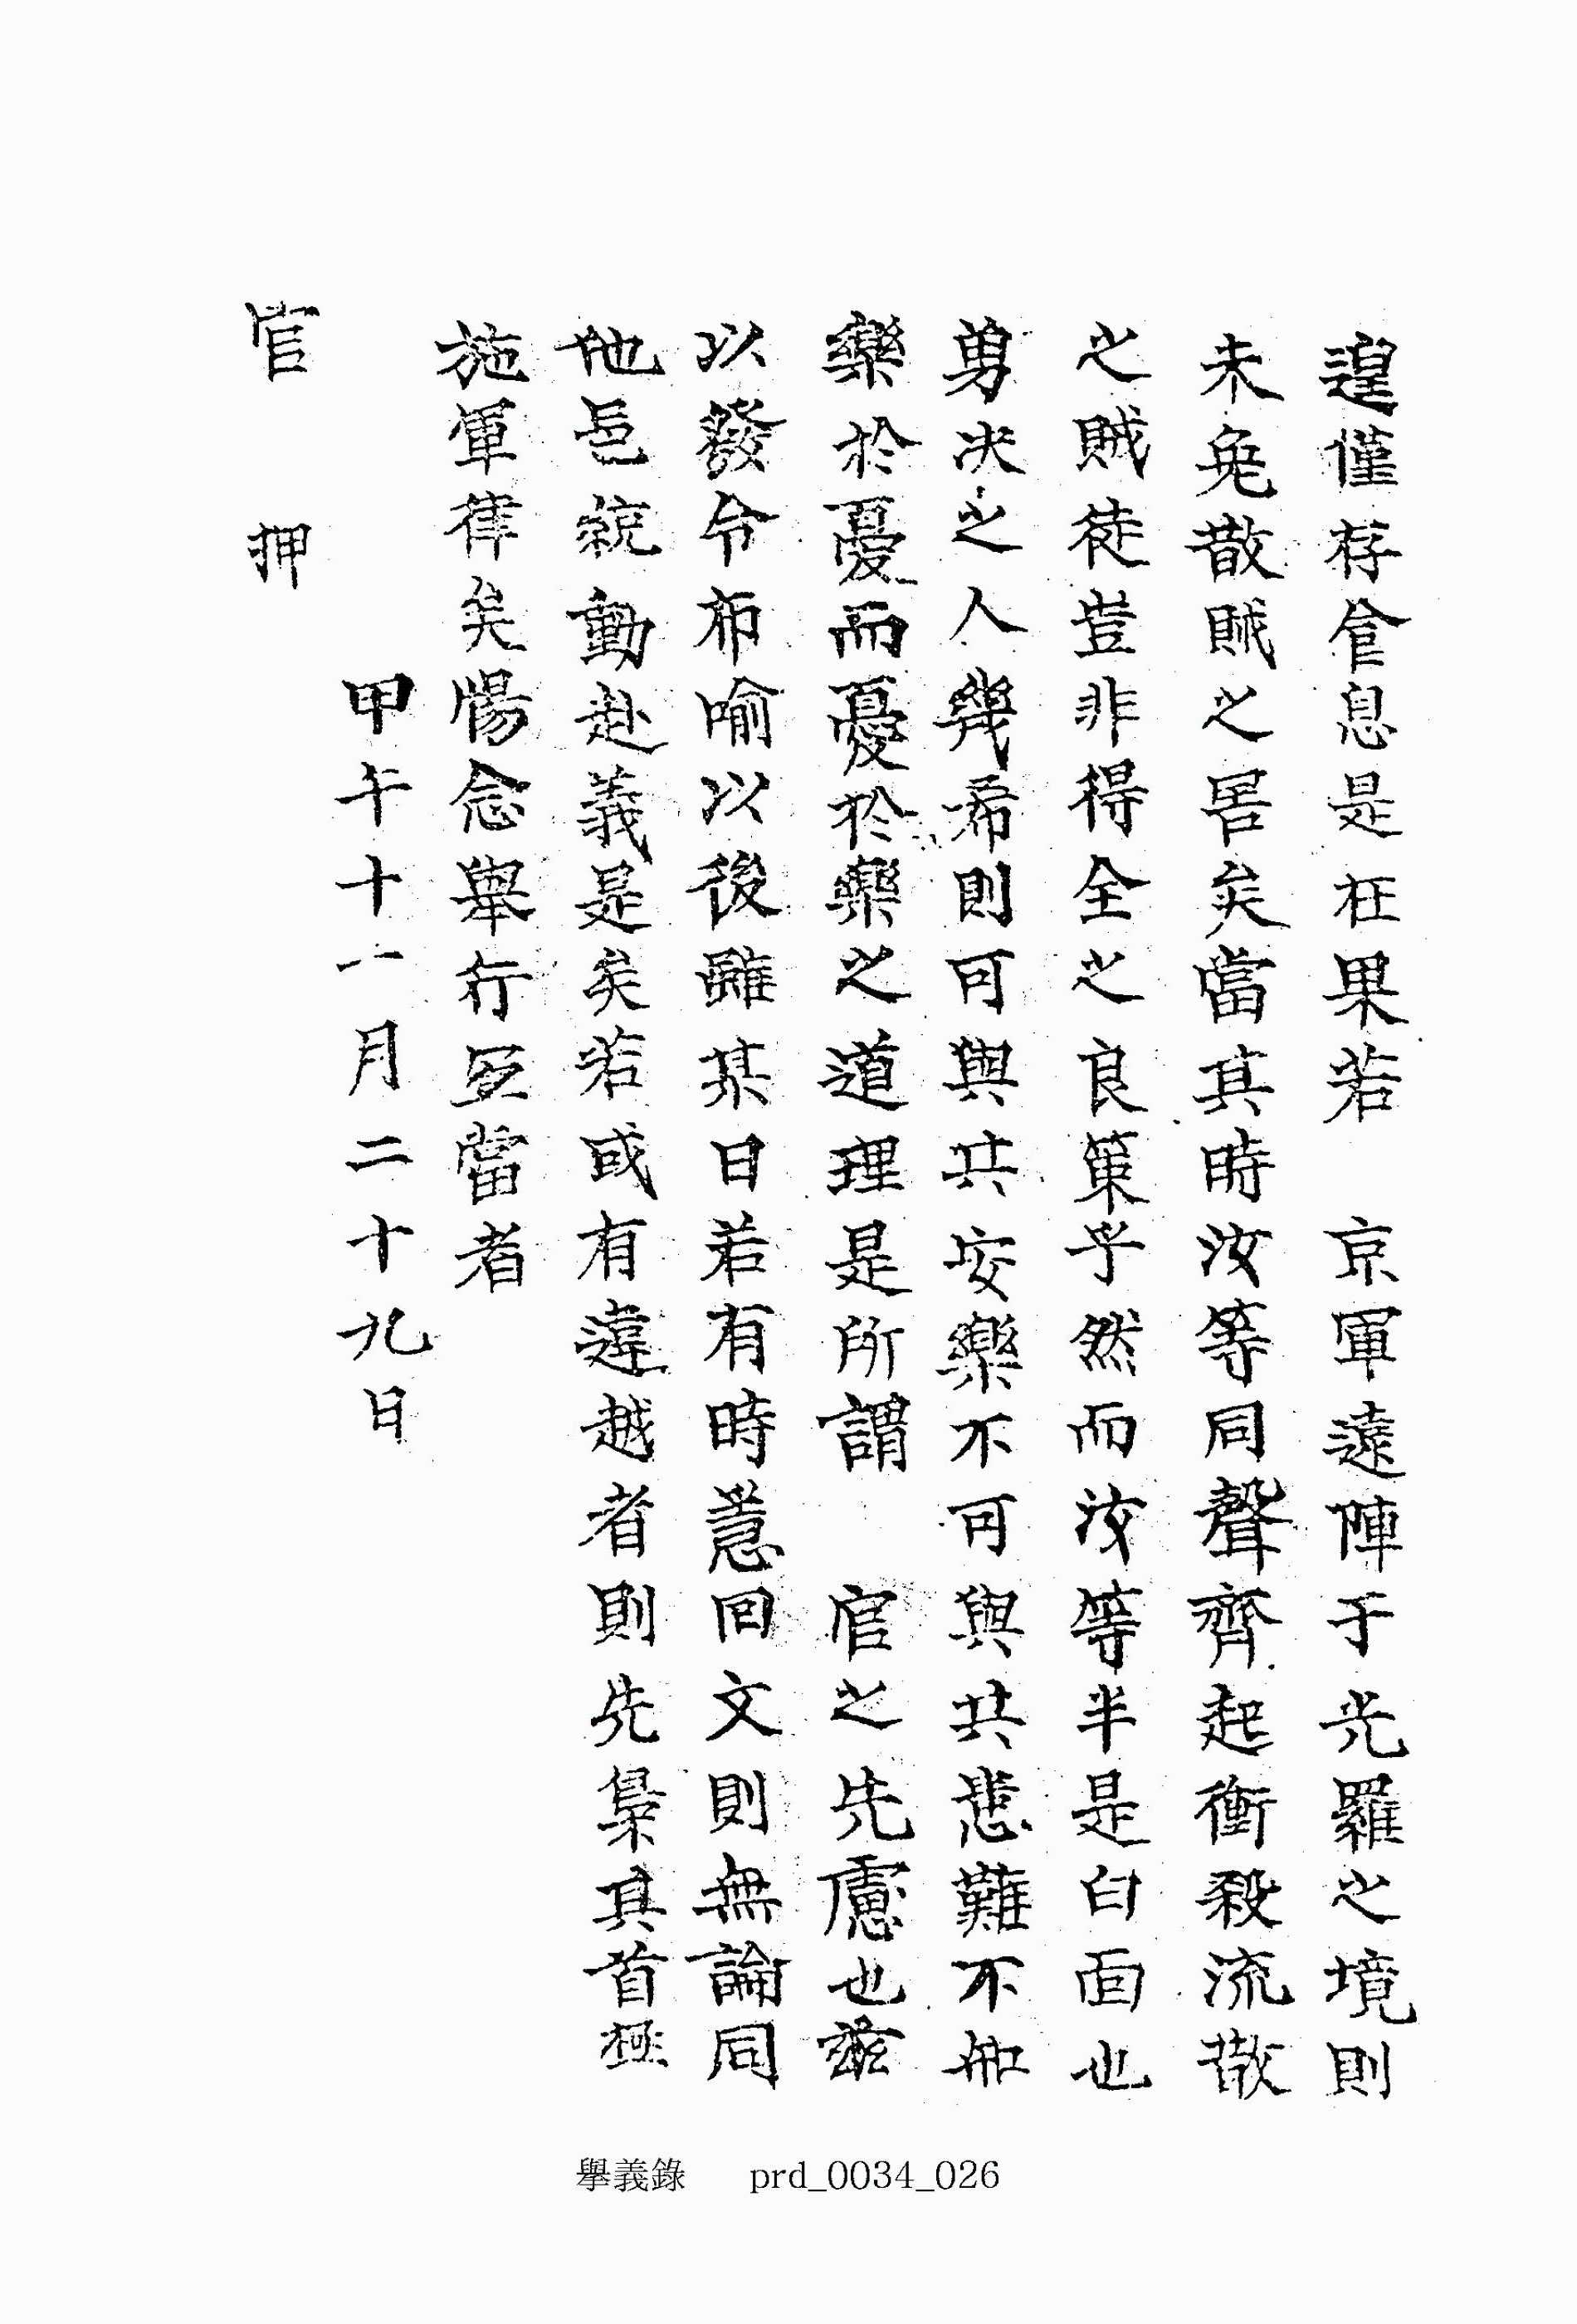 遑僅存官息是在果若　京軍遠陣于光羅之境則
未免散賊之害矣當其時汝等同聲齊起衝殺流散
之賊徒豈非得全之良策乎然而汝等半是白面也
勇决之人幾希則可與共安樂不可與共患難不知
樂於憂而憂於樂之道理是所謂　官之先慮也玆
以發令布喻以後雖某日若有時急回文則無論同
他邑統動赴義是矣若或有違越者則先梟其首極
施軍律矣惕念擧行宜當者
甲午十一月二十九日
官　押
擧義錄　prd_0034_026